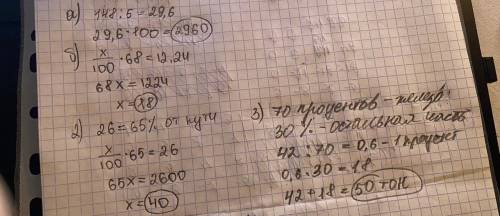 а) 148:5=29,6
29,6·100=2960
б) x/100·68=12,24
68x=1224
x=18
2) 26=65% от пути
x/100·65=26
65x=2600
x=40
3) 70 процентов - железо
30% - остальная часть
42:70=0,6-1 процент
0,6·30=18
42+18=50 тон